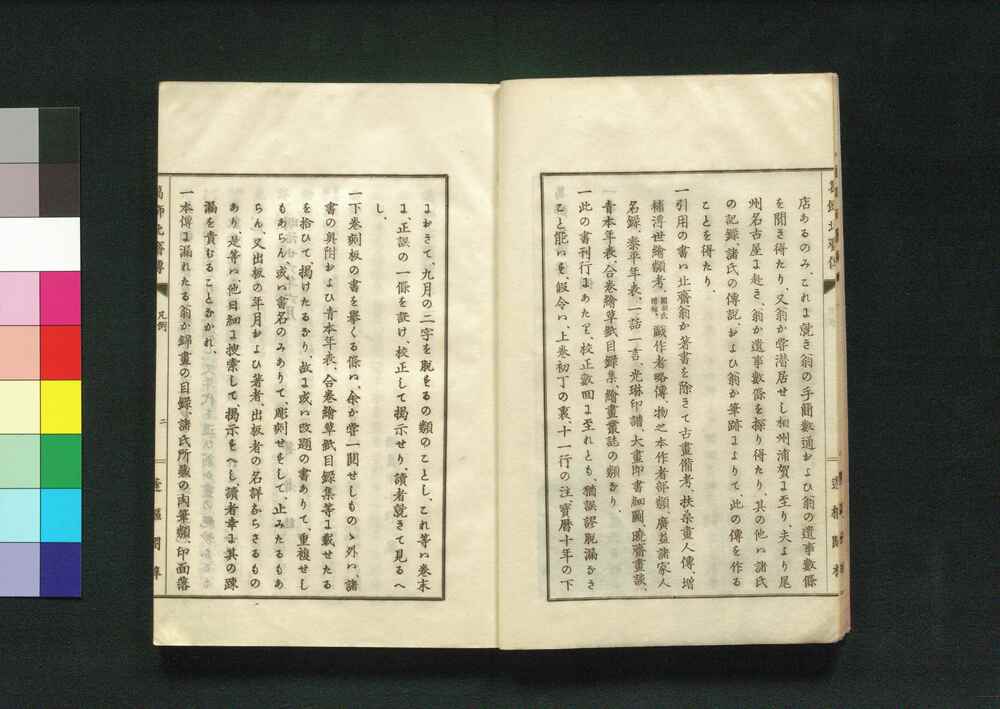 店あるのみ、これに就き翁の手簡數通および翁の遺事數條
を聞き得たり、又翁か嘗潜居せし相州浦賀に至り、夫より尾
州名古屋に赴き、翁か遺事數條を探り得たり、其の他ハ諸氏
の記録、諸氏の傳説および翁か筆跡によりて、此の傳を作る
ことを得たり、
一引用の書ハ北齋翁か著書を除きて、古畫備考、扶桑畫人傳、増
補浮世繪類考、戯作者略傳、物之本作者部類、廣益諸家人
名録、泰平年表、一話一言、光琳印譜、大畫即書細圖、曉齋畫談、
青本年表、合卷繪草紙目録集、繪畫叢誌の類なり、
一此の書刊行にあたり、校正數回に至れとも、猶誤謬脱漏なき
こと能ハす、假令ハ、上卷初丁の裏、十一行の注、寳暦十年の下
におきて、九月の二字を脱するの類のことし、これ等ハ卷末
に、正誤の一條を設け、校正して掲示せり、讀者就きて見るへ
し、
一下卷刻板の書を擧くる條ハ、余か嘗一閲せしものゝ外ハ、諸
書の奥附および青本年表、合卷繪草紙目録集等に載せたる
を拾ひて、掲けたるなり、故に或ハ改題の書ありて、重複せし
もあらん、或ハ書名のみありて、彫刻せすして、止みたるもあ
らん、又出板の年月および著者、出板者の名詳ならさるもの
あり、是等ハ、他日細に搜索して、掲示すへし、讀者幸に其の疎
漏を責むることなかれ、
一本傳に漏れたる翁か錦畫の目録、諸氏所藏の肉筆類、印面落
葛飾北齋傳
凡例
二
蓬樞閣